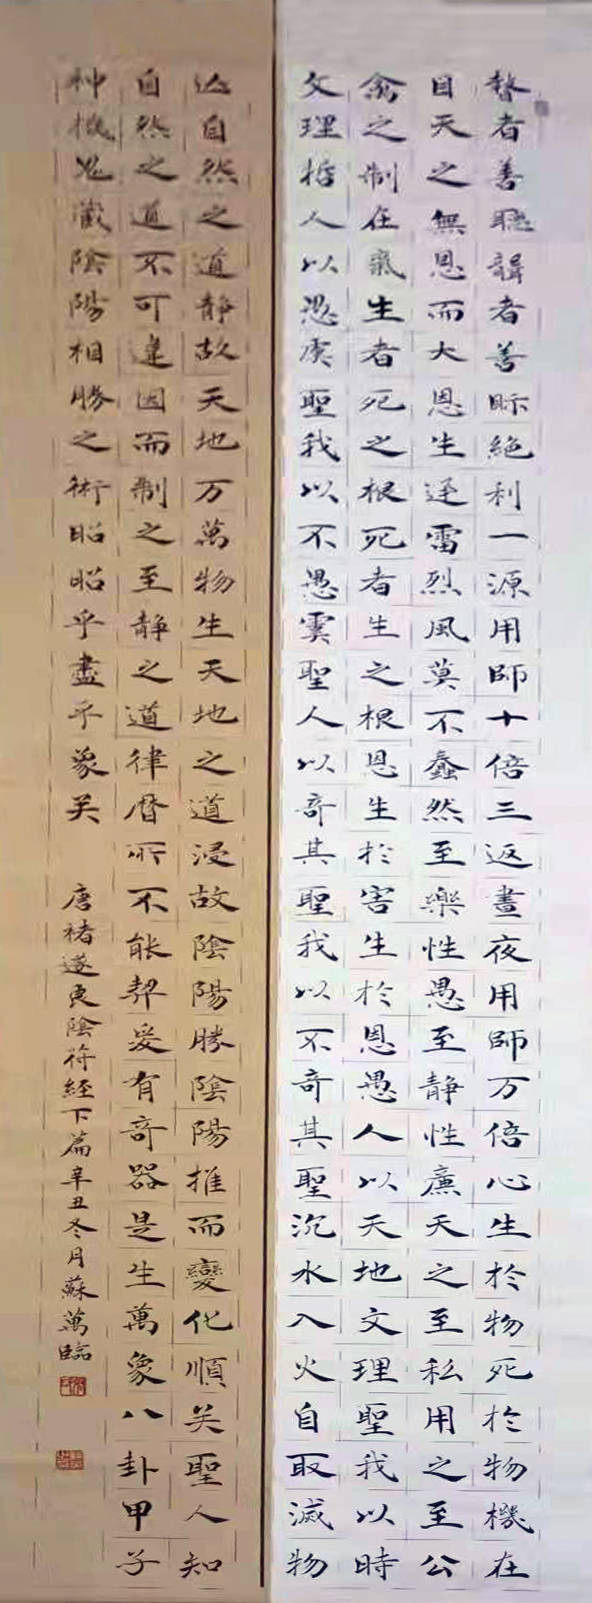 瞽者善聽聾者善眎絕利一源用師十倍三返晝夜用師万倍心生於物死於物機在
目天之無恩而大恩生迅雷烈風莫不蠢然至樂性愚至静性廉天之至私用之至公
禽之制在氣生者死之根死者生之根恩生於害生於恩愚人以天地文理聖我以時
文理哲人以愚虞聖我以不愚虞聖人以奇其聖我以不奇其聖沉水入火自取滅物
亾自然之道静故天地万萬物生天地之道浸故陰陽勝陰陽推而變化順矣聖人知
自然之道不可違因而制之至静之道律曆所不能契爰有奇器是生萬象八卦甲子
神機鬼藏陰陽相勝之術昭昭乎盡乎象矣 唐褚遂良陰符經下篇辛丑冬月蘇萬臨